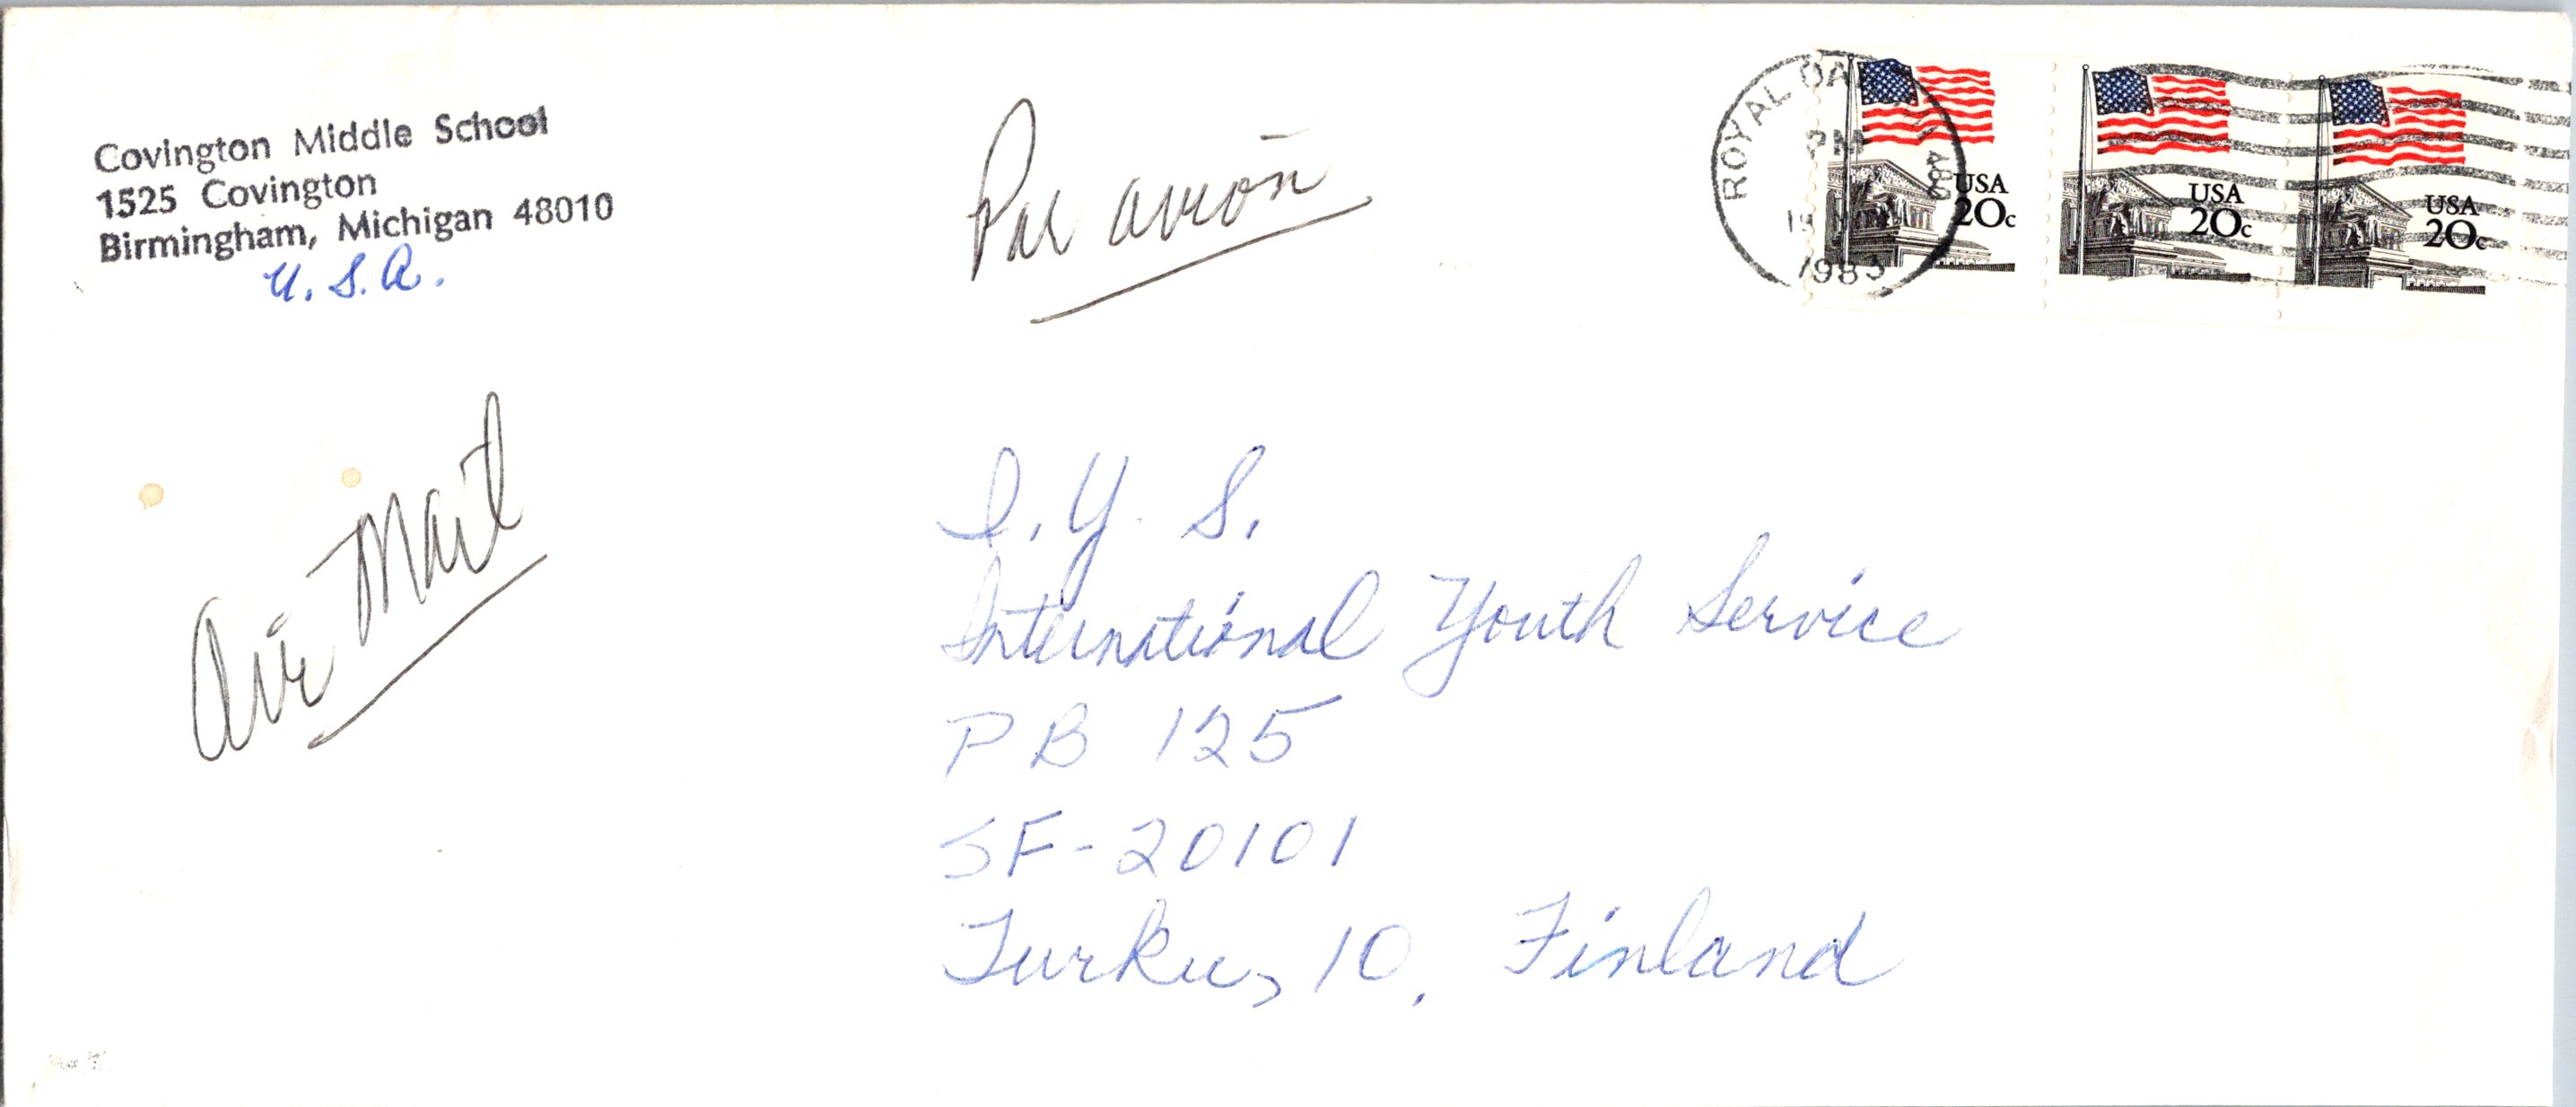 Covington Middle School
1525 Covington
Birmingham, Michigan 48010
U.S.A.
Par avion
ROYAL OA
PM
480
19
198
USA
20c
USA
20c
USA
20c
Air Mail
I.Y.S.
International Youth Service
PB 125
SF-20101
Turku, 10, Finland